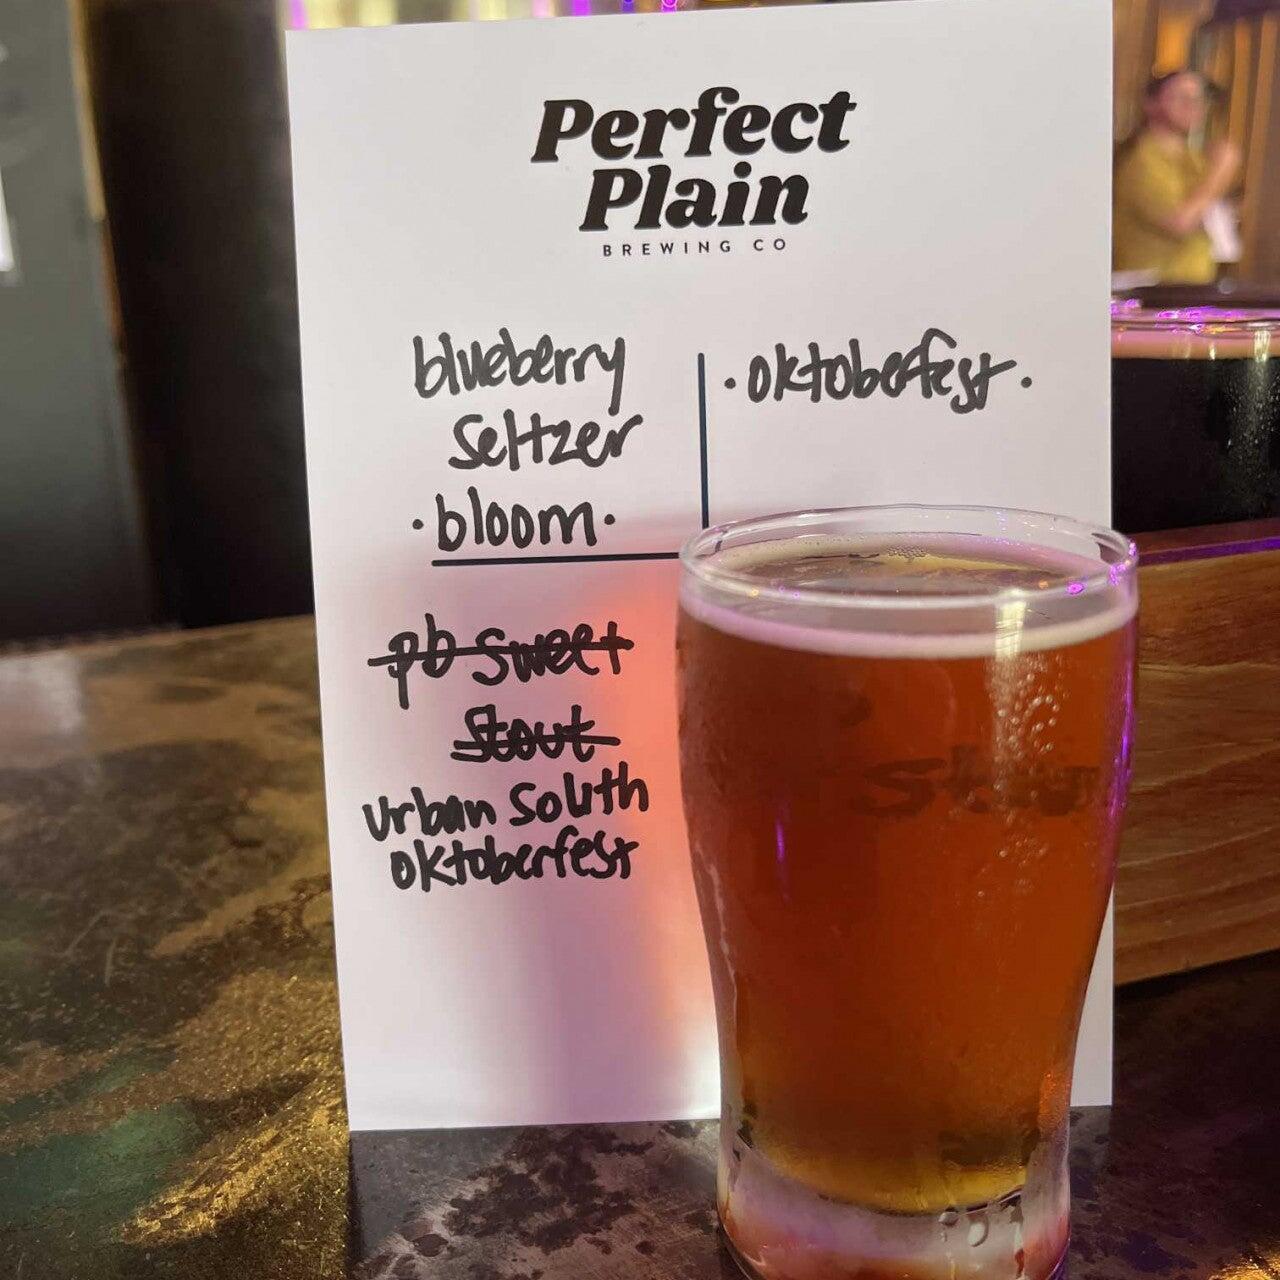 Perfect
Plain
BREWING CO
blueberry
seltzer
·bloom·
·oktoberfest·
pb sweet
stout
urban south
oktoberfest